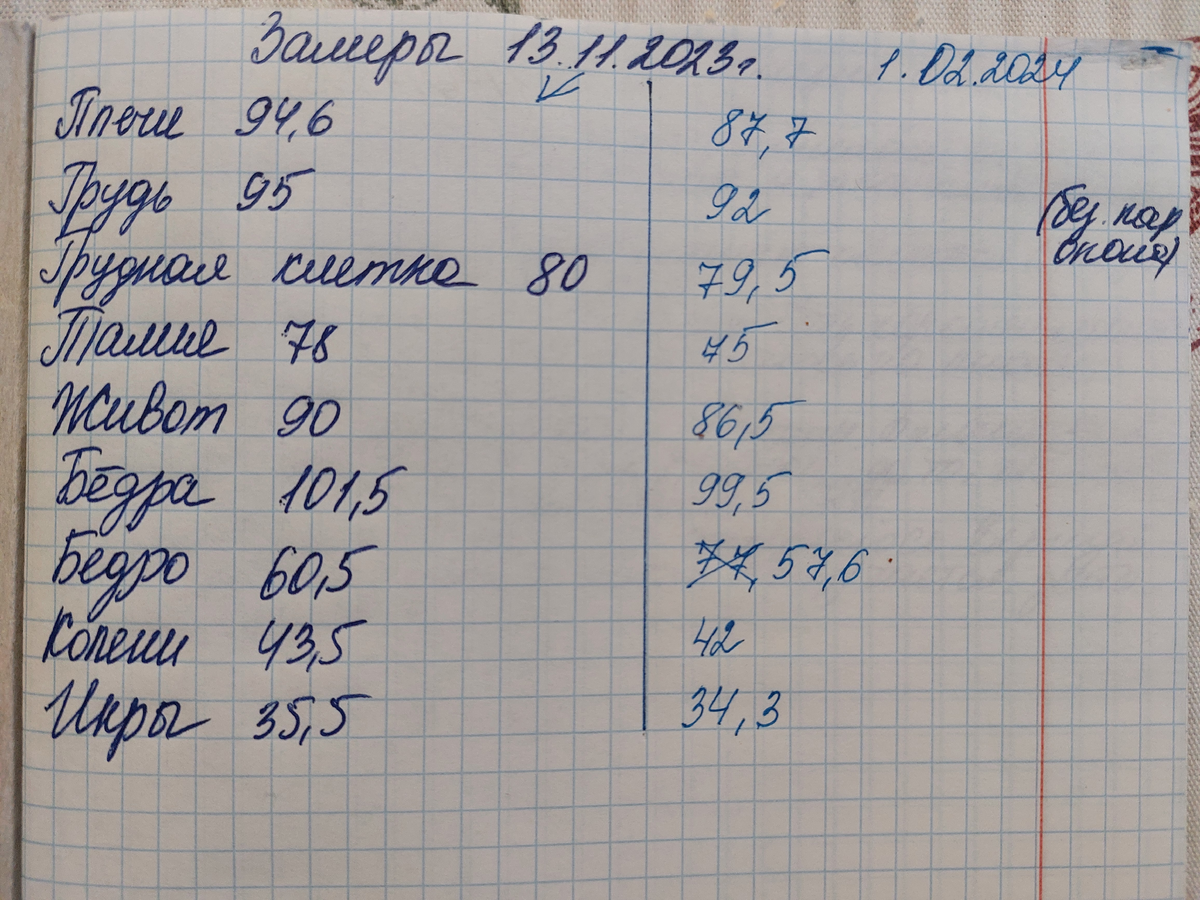 Замеры 13.11.2023г. 1.02.2024
Плечи 94,6 87,7
Грудь 95 92 (без пор
снона)
Грудная клетка 80 79,5
Талия 78 75
Живот 90 86,5
Бёдра 101,5 99,5
Бедро 60,5 77, 57,6
Колени 43,5 42
Икры 35,5 34,3